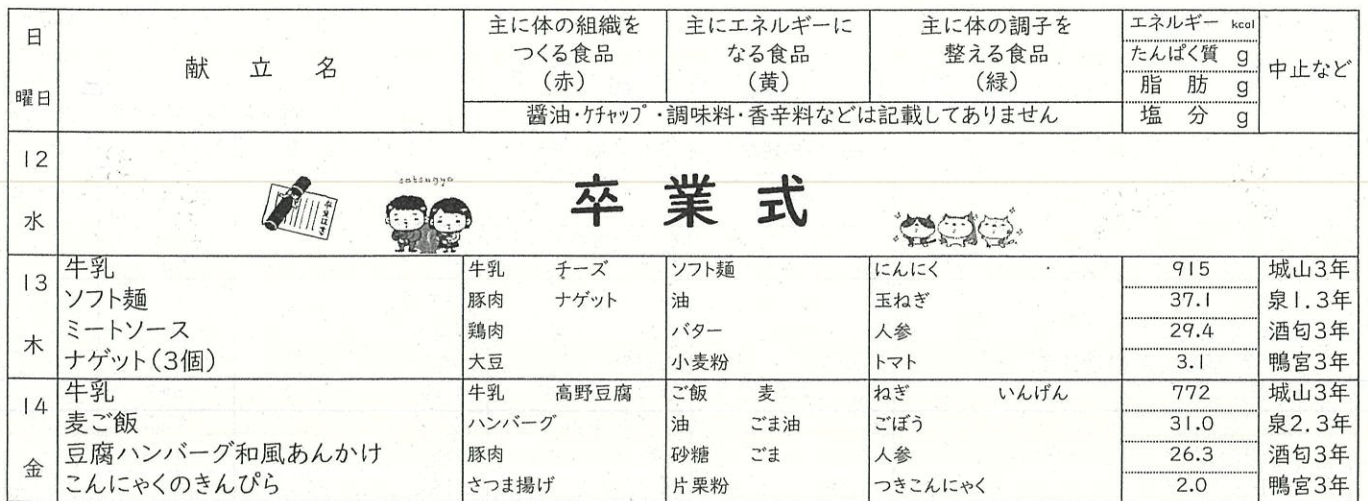 日
曜日
献 立 名
主に体の組織を
つくる食品
(赤)
主にエネルギーに
なる食品
(黄)
主に体の調子を
整える食品
(緑)
醤油・ケチャップ・調味料・香辛料などは記載してありません
エネルギー kcal
たんぱく質 g
脂 肪 g
塩 分 g
中止など
12
水
satsugyo
卒業式
13
木
牛乳 牛乳 チーズ ソフト麺 にんにく 915 城山3年
ソフト麺 豚肉 ナゲット 油 玉ねぎ 37.1 泉1.3年
ミートソース 鶏肉 バター 人参 29.4 酒匂3年
ナゲット(3個) 大豆 小麦粉 トマト 3.1 鴨宮3年
14
金
牛乳 牛乳 高野豆腐 ご飯 麦 ねぎ いんげん 772 城山3年
麦ご飯 ハンバーグ 油 ごま油 ごぼう 31.0 泉2.3年
豆腐ハンバーグ和風あんかけ 豚肉 砂糖 ごま 人参 26.3 酒匂3年
こんにゃくのきんぴら さつま揚げ 片栗粉 つきこんにゃく 2.0 鴨宮3年